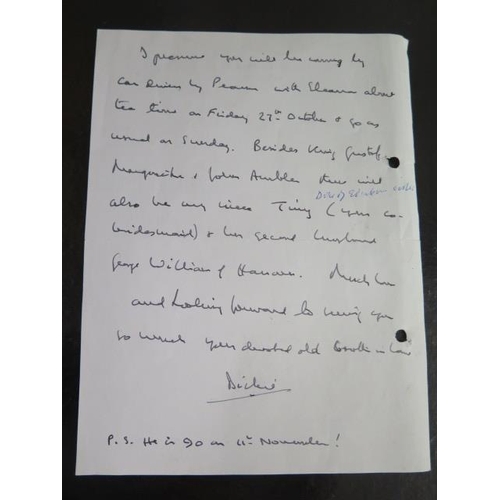 I presume you will be coming by
car driven by Pearson with Sharon about
tea time on Friday 27th October & go as
usual on Sunday. Besides King Gustaf
Margaretha & John Ambler there will
also be my niece Tiny (your co-
bridesmaid) & her second husband
George William of Hanover. Much love
and looking forward to seeing you
so much your devoted old Brother in Law
Dickie
P.S. He is 90 on 11th November!